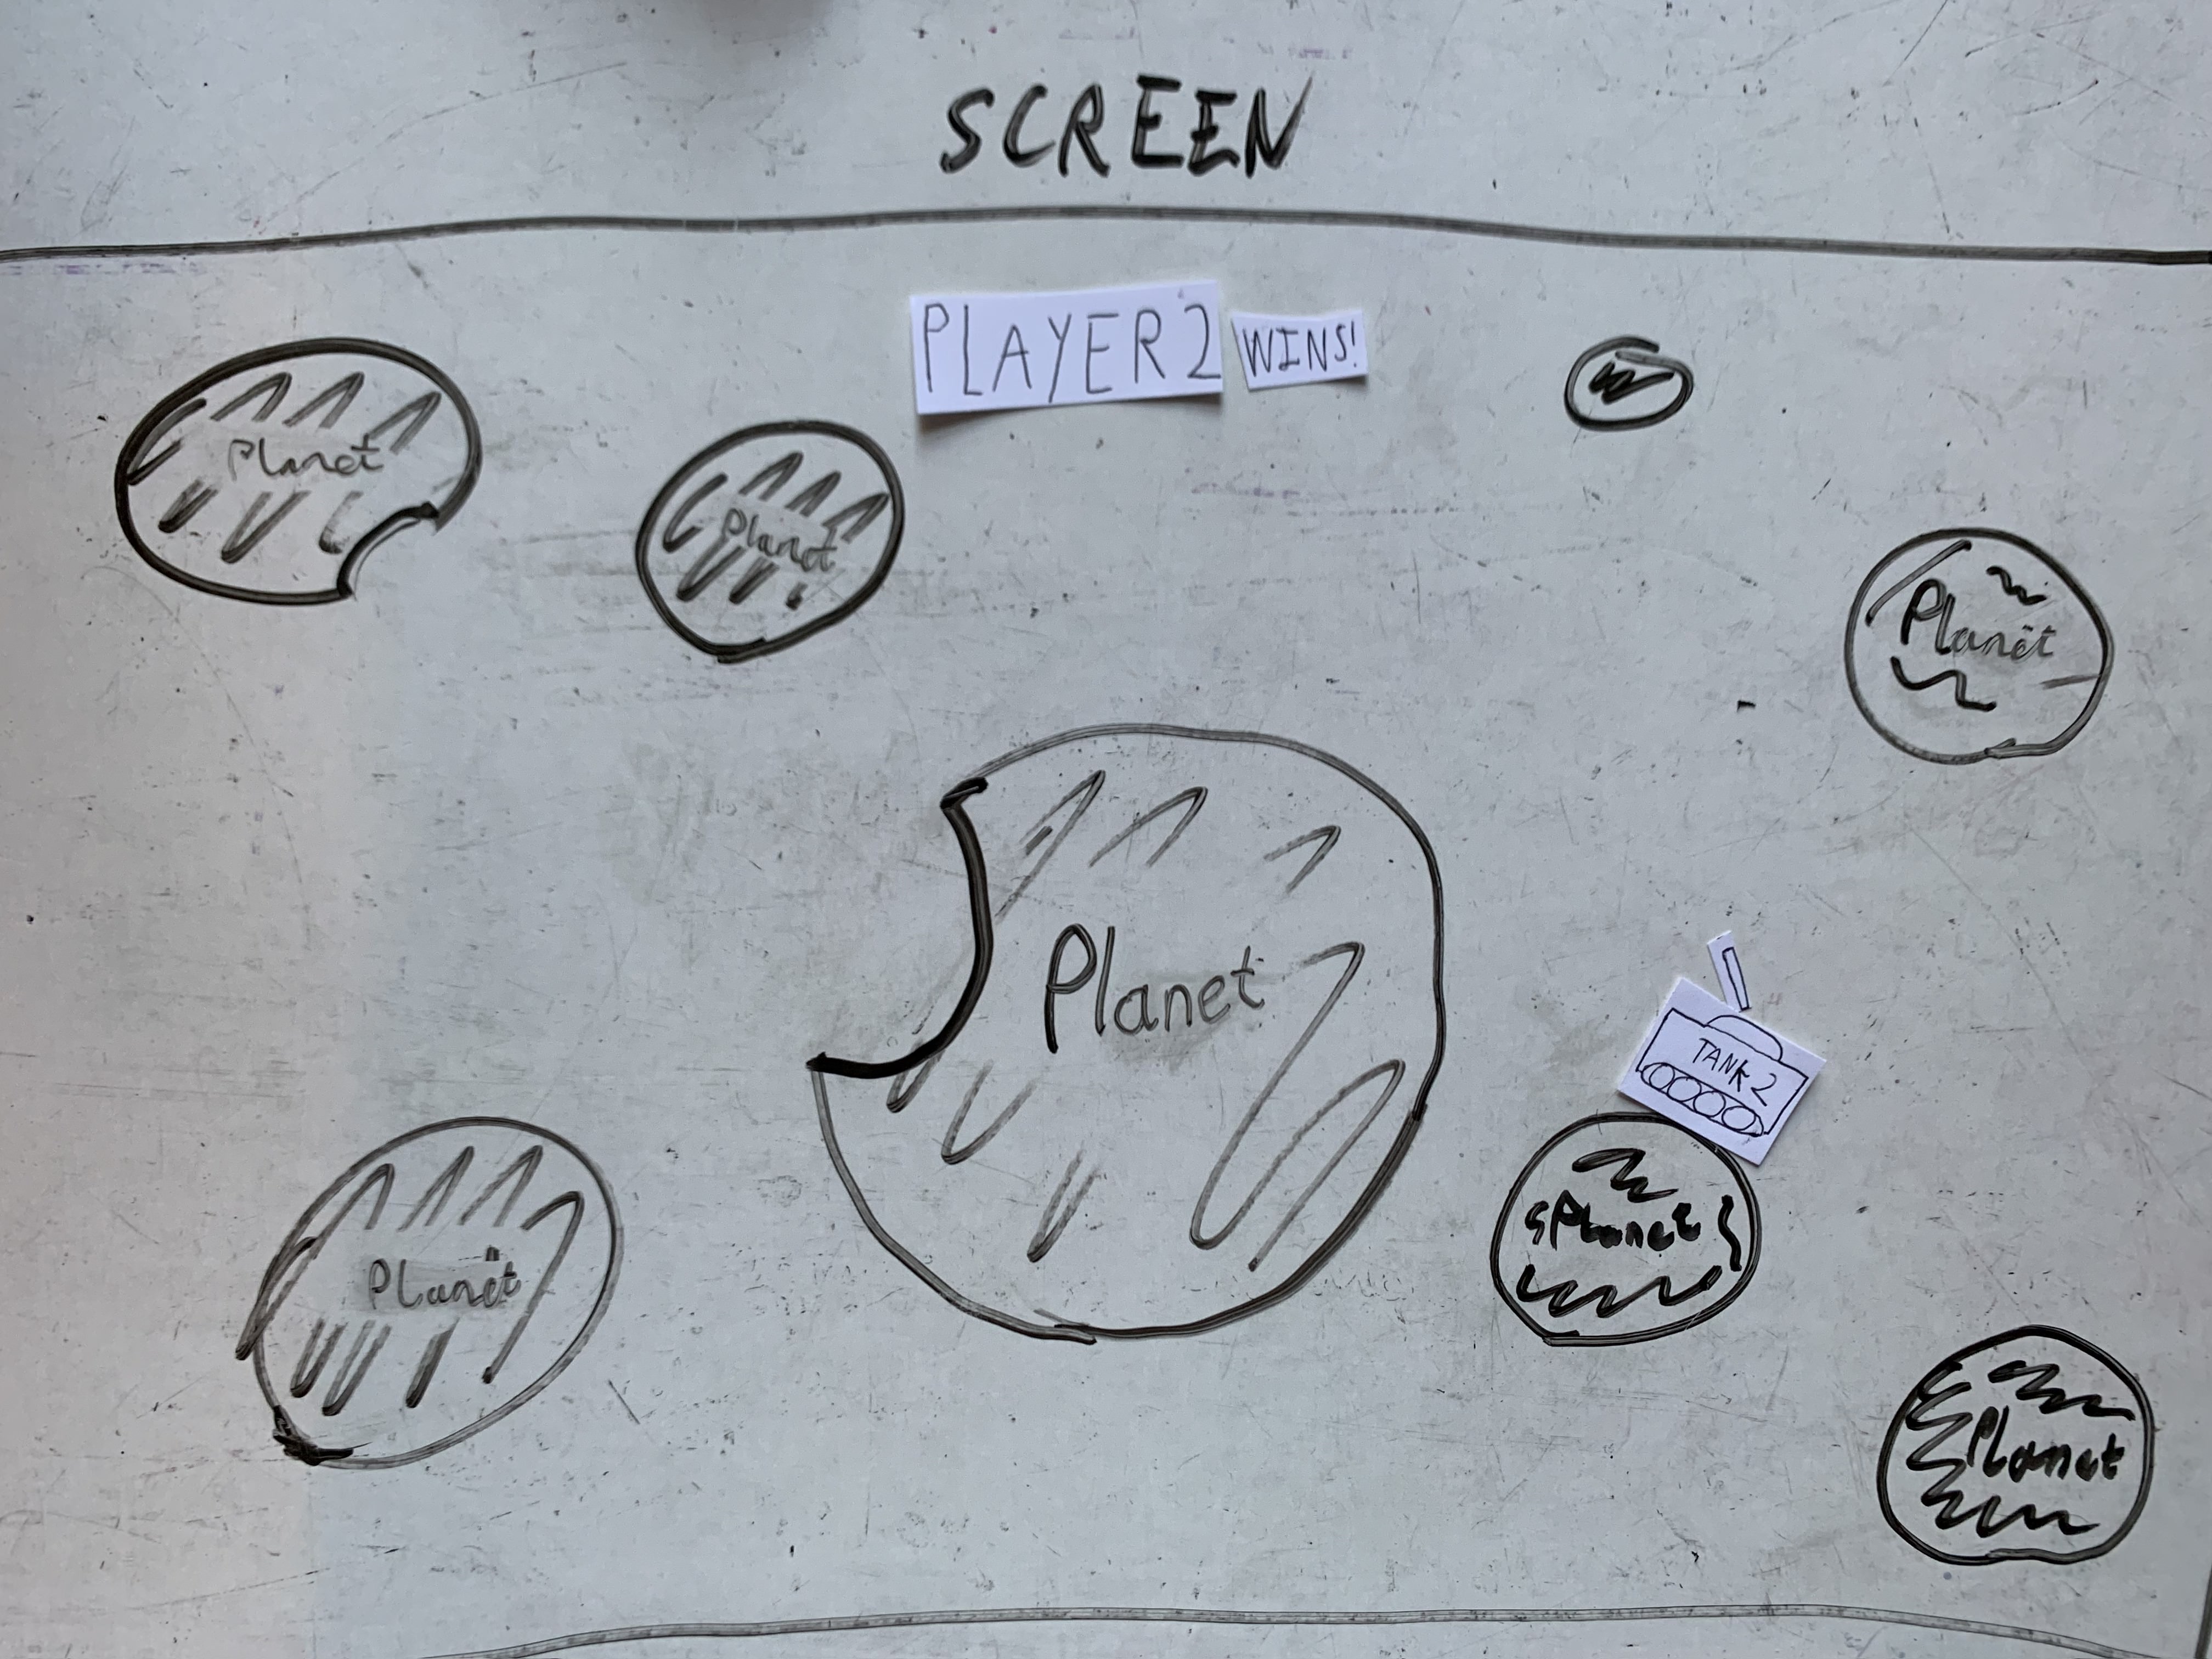 SCREEN
PLAYER 2 WINS!
Planet
Planet
Planet
Planet
TANK 2
Planet
Planet
Planet